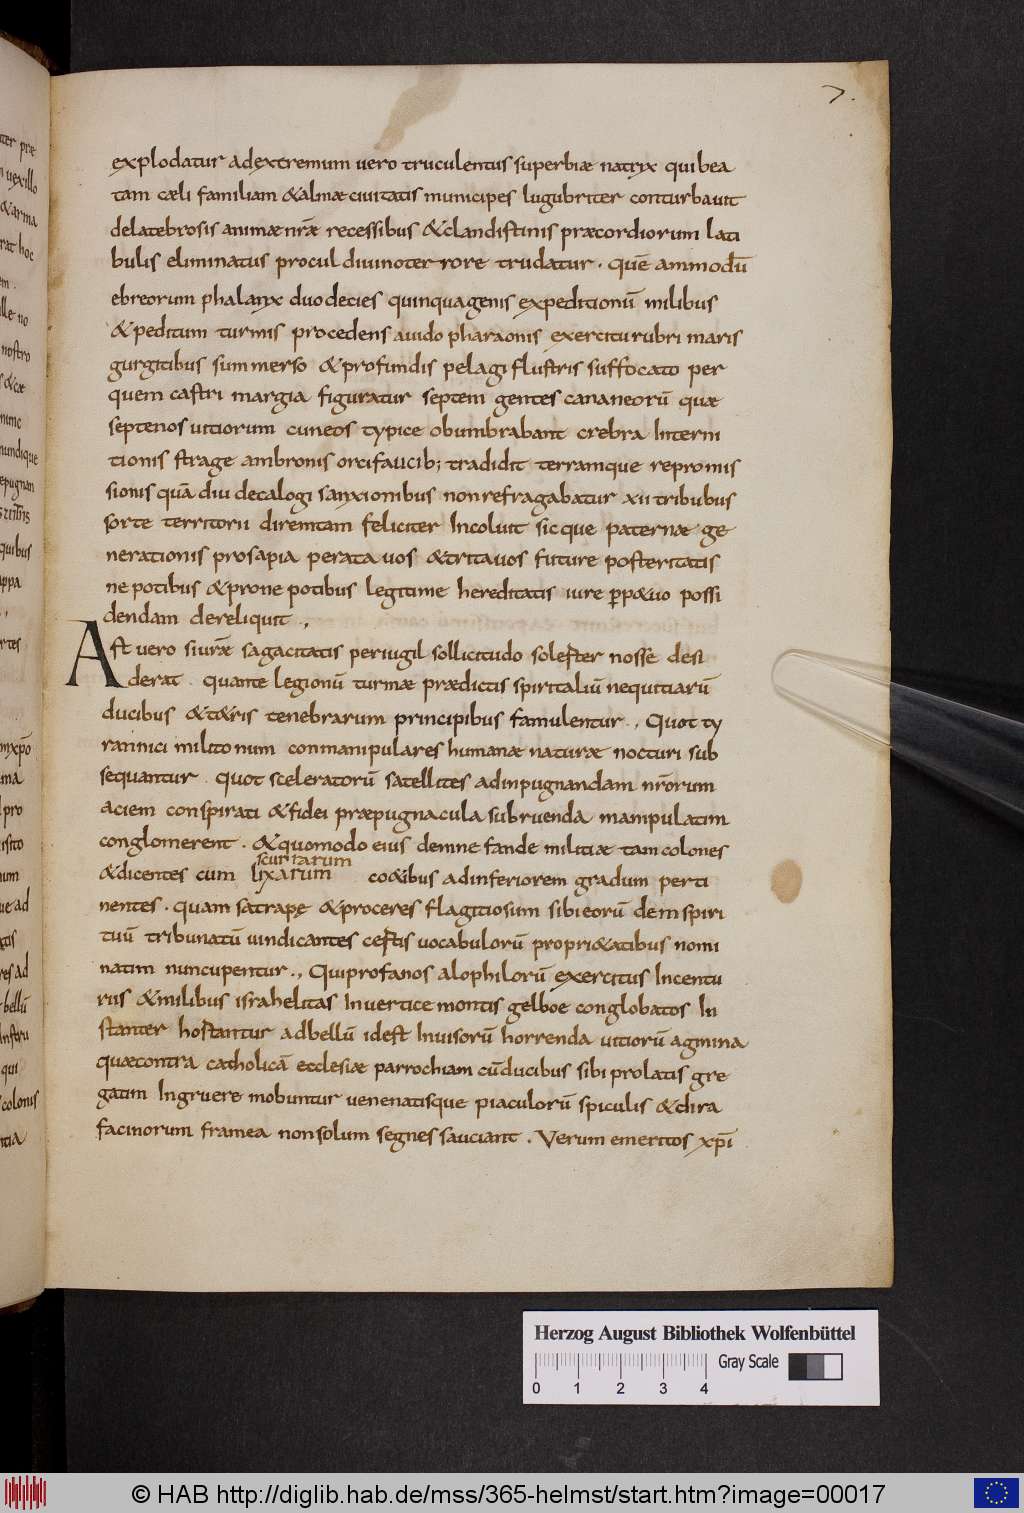 7.
explodatur adextremum vero truculentus superbiæ natrix quibea
tam cæli familiam &almæ ciuitatis municipes lugubriter conturbauit
delatebrosis animæ nr̄æ recessibus &clandistinis præcordiorum lati
bulis eliminatus procul diuinoterrore trudatur. quē ammodū
ebreorum phalanx duodecies quinquagenis expeditionū milibus
&peditum turmis procedens auido pharaonis exercitu rubri maris
gurgitibus summerso &profundis pelagi flustris suffocato per
quem castri margia figuratur septem gentes cananeorū quæ
septenos uitiorum cuneos typice obumbrabant crebra Interni
tionis strage ambronis orci faucib; tradidit terramque repromis
sionis quā diu decalogi sanxionibus non refragabatur xii tribubus
sorte territorii diremtam feliciter Incoluit sicque paternæ ge
nerationis prosapia peratauos &tritauos future posteritatis
nepotibus &pronepotibus legitime hereditatis iure ꝑp&uo possi
dendam dereliquit .,
Ast vero siurǣ sagacitatis peruigil sollicitudo solester nosse desi
derat. quante legionū turmæ prædictis spiritaliū nequitiarū
ducibus &t&ris tenebrarum principibus famulentur., Quot ty
rannici militonum conmanipulares humanæ naturæ nocturi sub
sequantur. quot sceleratorū satellites adinpugnandam nr̄orum
aciem conspirati &fidei præpugnacula subruenda manipulatim
conglomerent. &quomodo eius demnefande militiæ tam colones
scurrarum
&dicentes cum lixarum co&ibus adinferiorem gradum perti
nentes. quam satrapę &proceres flagitiosum sibi eorū dem spiri
tuū tribunatū uindicantes cestis uocabulorū propri&atibus nomi
natim nuncupentur., Qui profanos alophilorū exercitus Incentu
riis &milibus israhelitas Inuertice montis gelboe conglobatos In
stanter hostantur adbellū idest Inuisorū horrenda uitiorū agmina
quæcontra catholicā ecclesiæ parrochiam cū ducibus sibi prolatis gre
gatim Ingruere mobuntur uenenatisque piaculorū spiculis &dira
facinorum framea non solum segnes sauciant. Verum emeritos xp̄i
Herzog August Bibliothek Wolfenbüttel
Gray Scale
0 1 2 3 4
© HAB http://diglib.hab.de/mss/365-helmst/start.htm?image=00017